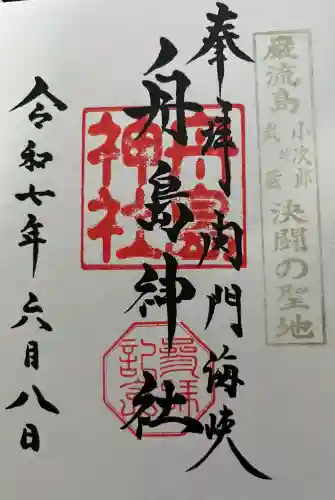 巌流島
小次郎
武蔵
決闘の聖地
奉拝 内門海峡
舟島神社
舟島
神社
参拝
記念
令和七年六月八日